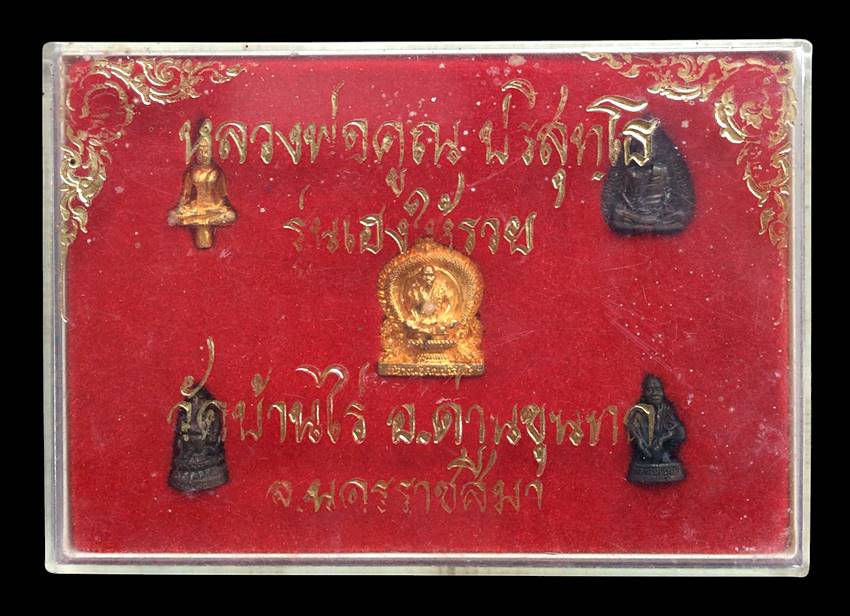 หลวงพ่อคูณ ปริสุทฺโธ
รุ่นเฮงให้รวย
วัดบ้านไร่ อ.ด่านขุนทด
จ.นครราชสีมา